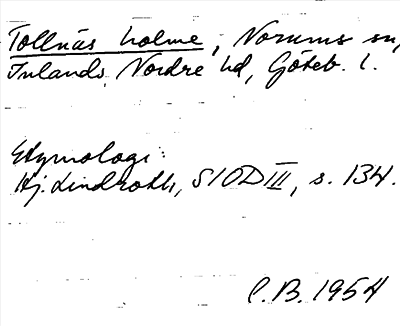 Tollnäs holme, Norums sn,
Inlands Nordre hd, Göteb. l.
Etymologi:
Hj. Lindroth, SIOD III, s. 134.
C.B. 1954